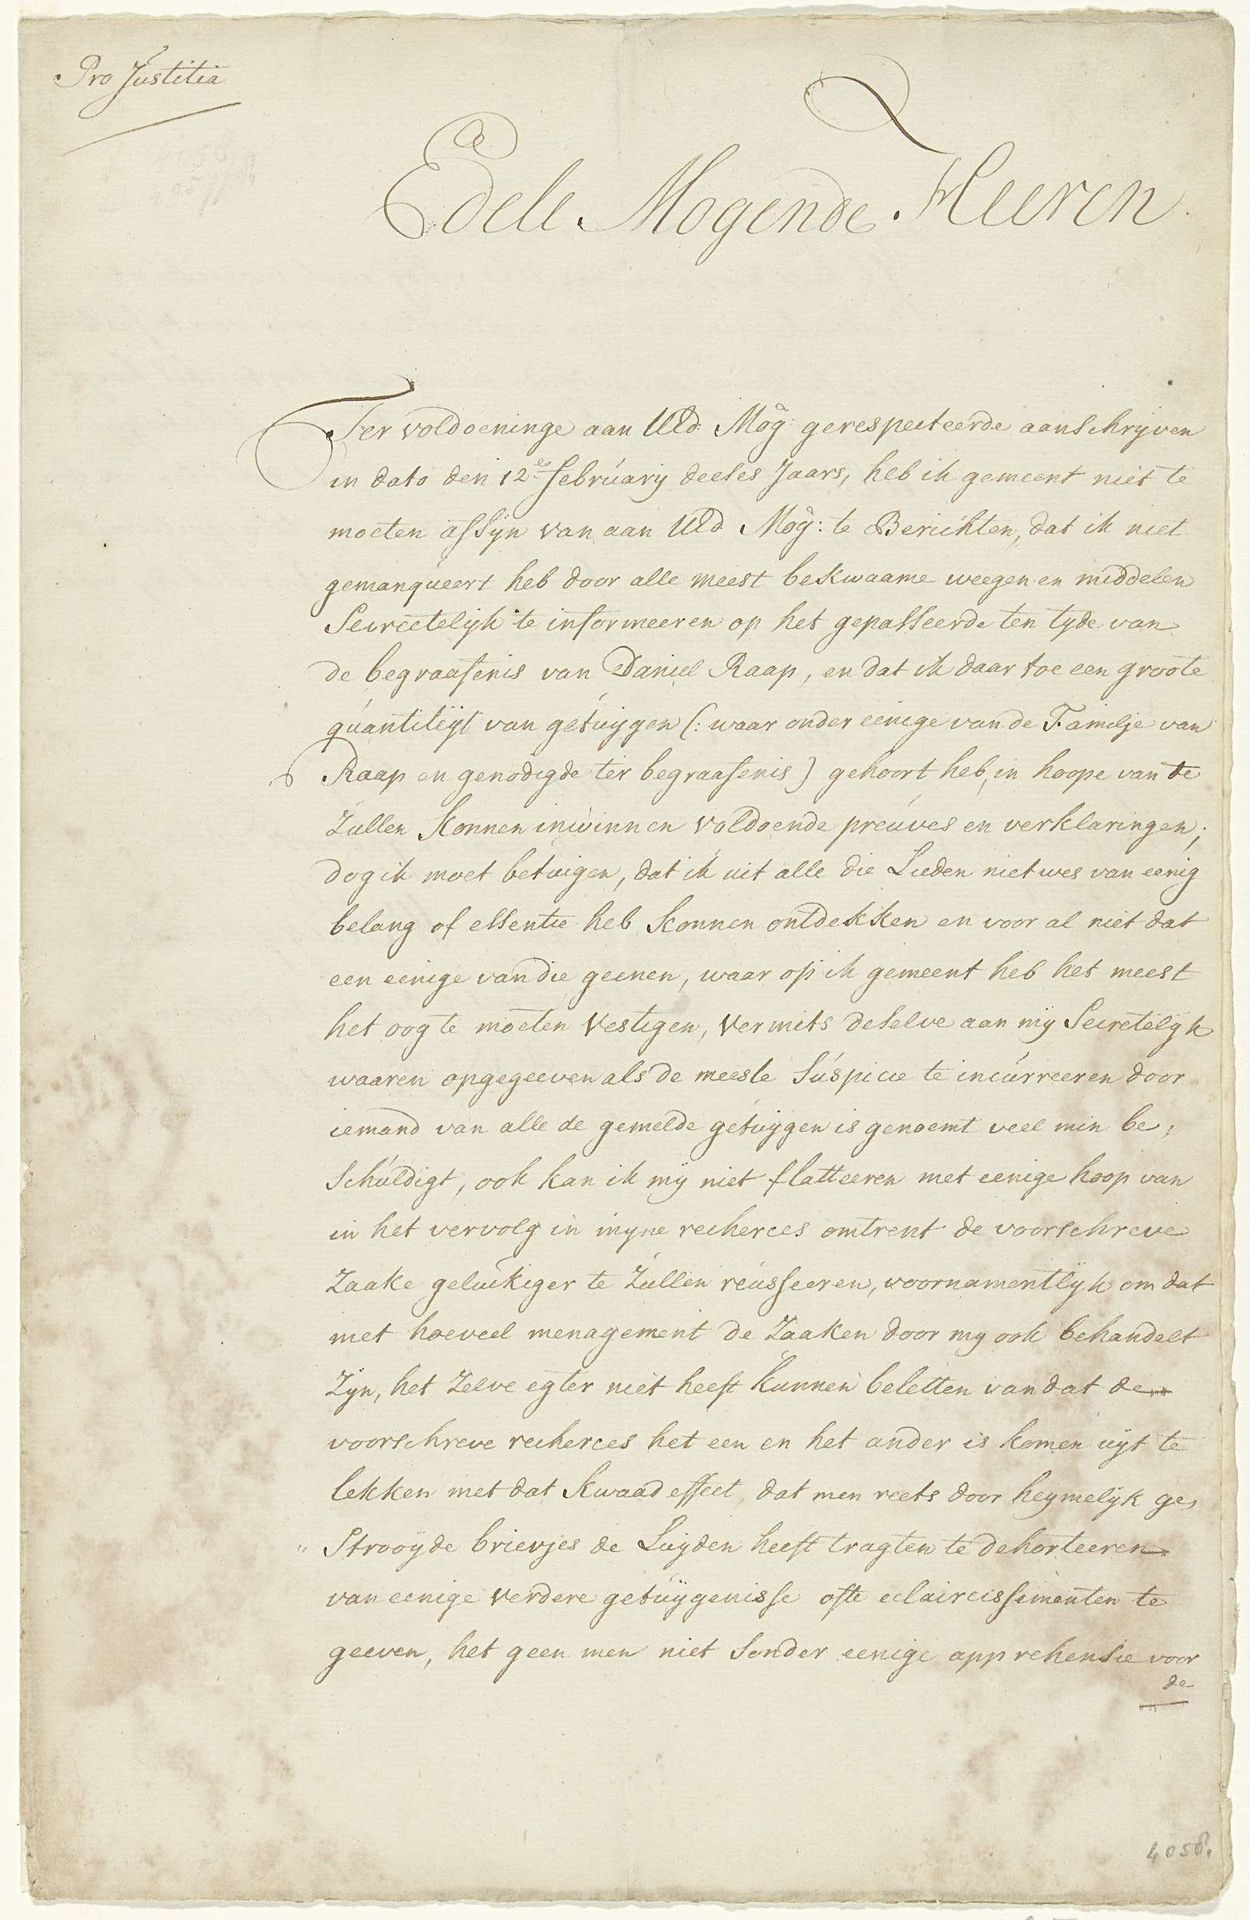 Pro Justitia
Edele Mogende Heeren
Ter voldoeninge aan UEd. Mog: gerespecteerde aanschrijven
in dato den 12e february deeses Jaars, heb ik gemeent niet te
moeten afsijn van aan UEd Mog: te Berichten, dat ik niet
gemanqueert heb door alle meest bekwaame weegen en middelen
Secreetelijk te informeeren op het gepasseerde ten tyde van
de begraafenis van Daniel Raap, en dat ik daar toe een groote
quantiteijt van getuijgen (: waar onder eenige van de Familje van
Raap en genodigde ter begraafenis) gehoort heb, in hoope van te
Zullen konnen inwinnen voldoende preuves en verklaringen;
dog ik moet betuigen, dat ik uit alle die Lieden niet wes van eenig
belang of essentie heb konnen ontdekken en voor al niet dat
een eenige van die geenen, waar op ik gemeent heb het meest
het oog te moeten vestigen, vermits deselve aan mij Secretelijk
waaren opgegeeven als de meeste suspicie te incurreeren door
iemand van alle de gemelde getuijgen is genoemt veel min be,
schuldigt, ook kan ik mij niet flatteeren met eenige hoop van
in het vervolg in myne recherces omtrent de voorschreve
Zaake gelukiger te Zullen reusseeren, voornamentlijk om dat
met hoeveel menagement de Zaaken door my ook behandelt
Zijn, het Zelve egter niet heeft kunnen beletten van dat de
voorschreve recherces het een en het ander is komen uijt te
lekken met dat kwaad effect, dat men reets door heymelijk ge,
strooijde brievjes de Luijden heeft tragten te dehorteeren
van eenige verdere getuijgenisse ofte eclaircissementen te
geeven, het geen men niet sonder eenige apprehensie voor
de
4058.